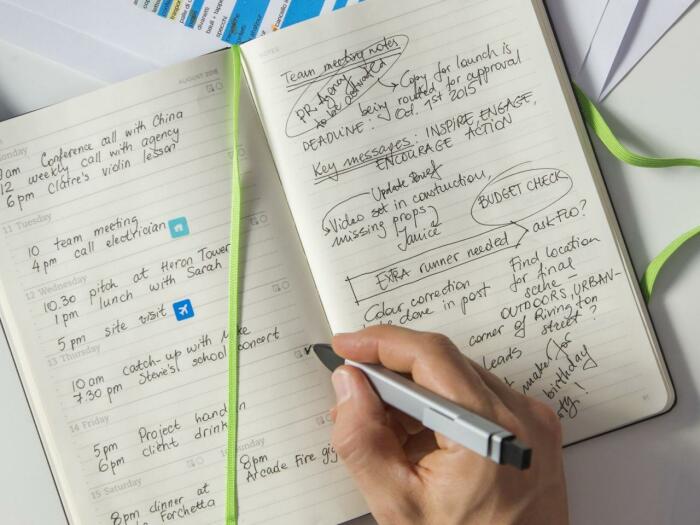 AUGUST 2015
Monday
am Conference call with China
12 weekly call with agency
6 pm Claire's violin lesson
11 Tuesday
10 team meeting
4 pm call electrician
12 Wednesday
10.30 pitch at Heron Tower
1 pm lunch with Sarah
5 pm site visit
13 Thursday
10 am catch-up with
7.30 pm Steve's school concert
14 Friday
5pm Project hand in
6pm client drink
15 Saturday
8pm dinner at
Forchetta
Sunday
8pm
Arcade Fire gig
NOTES
Team meeting notes
PR Agency
to be
Copy for launch is
being routed for approval
DEADLINE: Oct. 1st 2015
Key messages: INSPIRE, ENGAGE,
ENCOURAGE ACTION
Update Brief
Video set in construction,
missing props
Janice
BUDGET CHECK
EXTRA runner needed
ask FLO?
Colour correction
be done in post
Find location
for final
scene -
OUTDOORS, URBAN-
corner of Rivington
street?
Leads
make
for
birthday